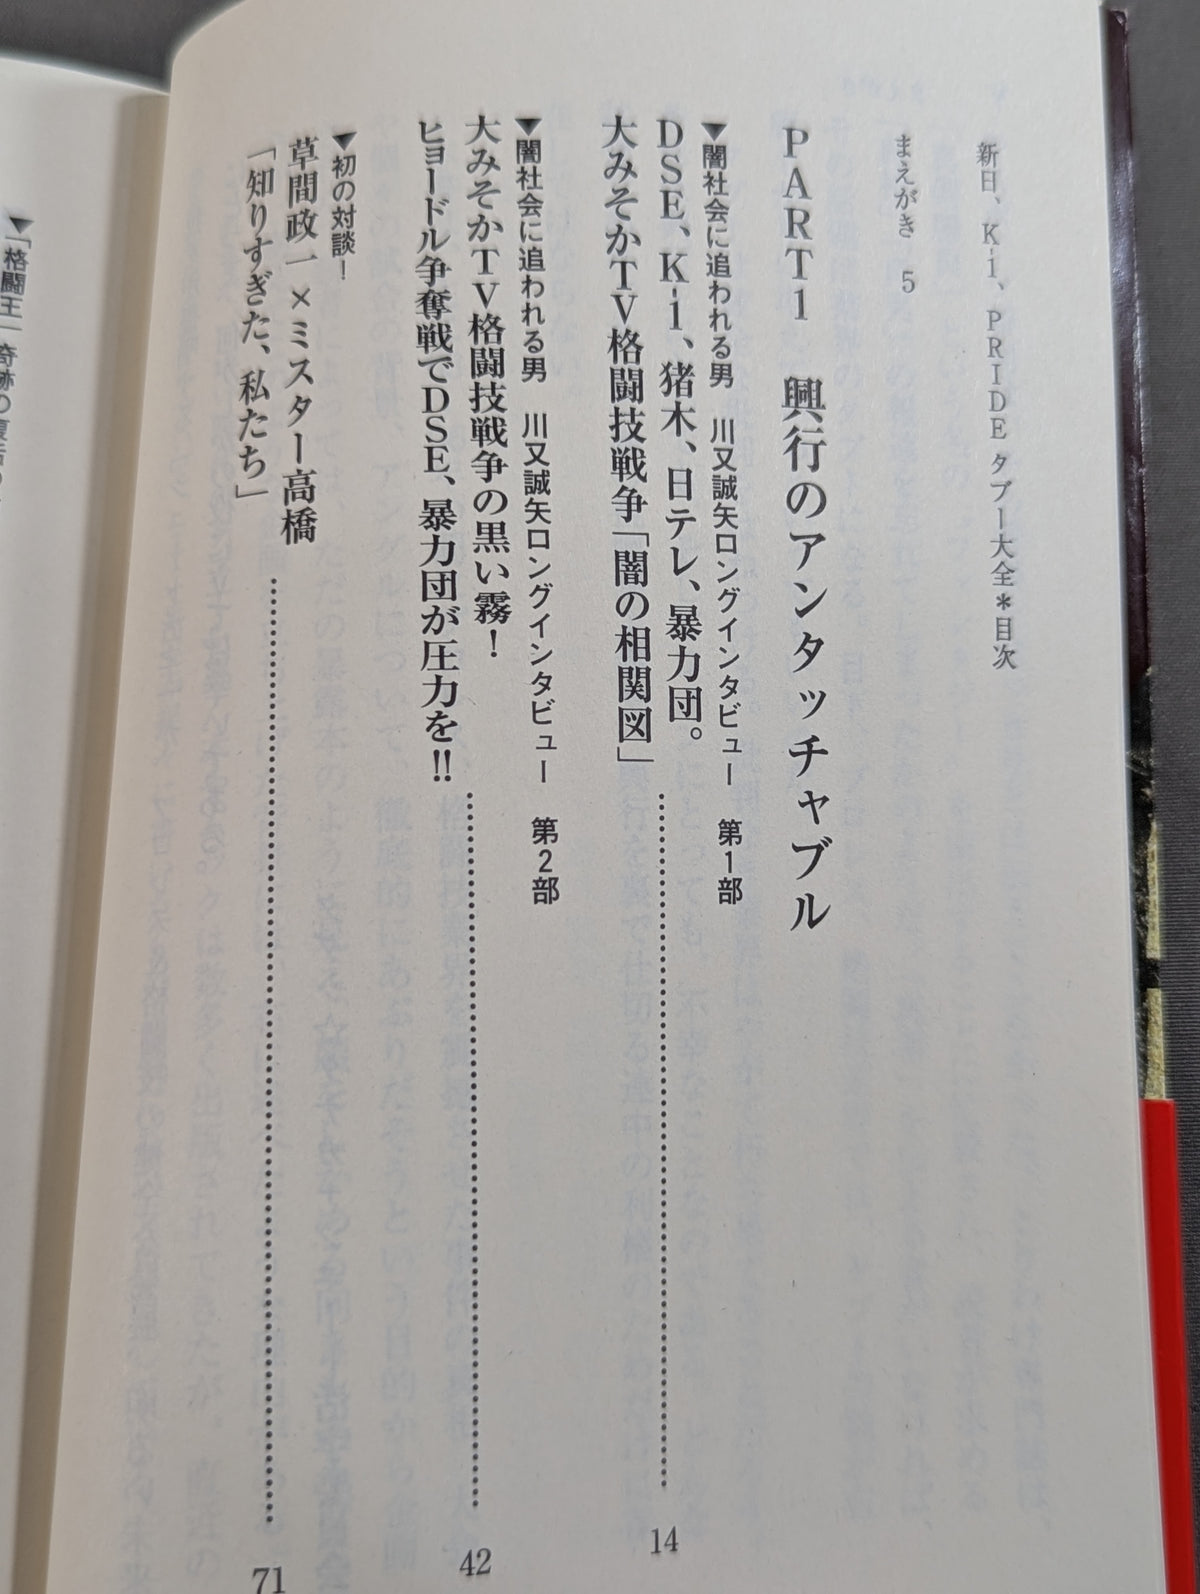 新日、K-1、PRIDEタブー大全＊目次
まえがき 5
PART1 興行のアンタッチャブル
▼闇社会に追われる男 川又誠矢ロングインタビュー 第1部
DSE、K-1、猪木、日テレ、暴力団。
大みそかTV格闘技戦争「闇の相関図」………14
▼闇社会に追われる男 川又誠矢ロングインタビュー 第2部
大みそかTV格闘技戦争の黒い霧！
ヒョードル争奪戦でDSE、暴力団が圧力を!!………42
▼初の対談！
草間政一×ミスター高橋
「知りすぎた、私たち」………71
▼「格闘王」奇跡の復活の